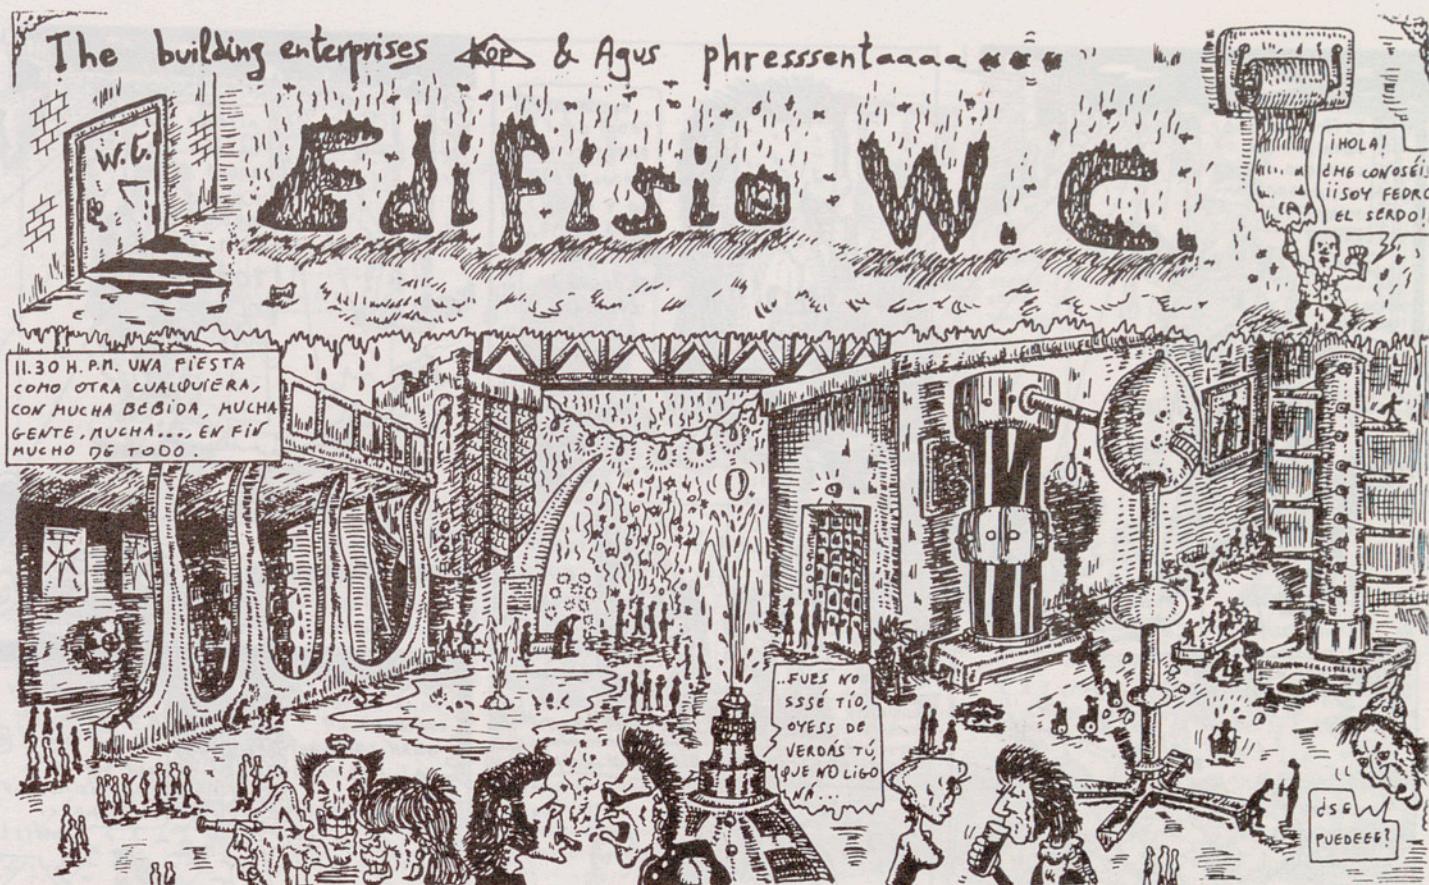 The building enterprises KOP & Agus phresssentaaaa...
W.C.
Edifisio W.C.
¡HOLA!
¿ME CONOSÉI
¡¡SOY FEDRO
EL SERDO!
11.30 H. P.M. UNA FIESTA
COMO OTRA CUALQUIERA,
CON MUCHA BEBIDA, MUCHA
GENTE, MUCHA..., EN FIN
MUCHO DE TODO.
..FUES NO
SSSÉ TÍO,
OYESS DE
VERDÁS TÚ
QUE NO LIGO
NÁ...
¿SE
PUEDEEE?